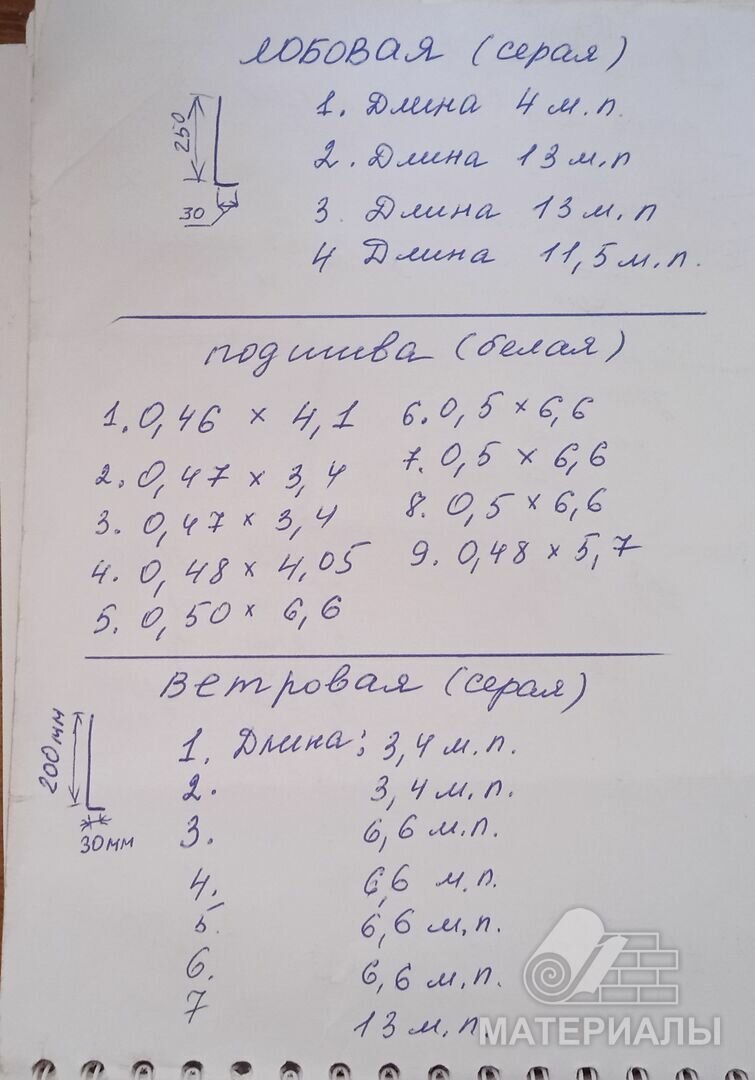 ЛОБОВАЯ (серая)
250
30
1. Длина 4 м.п.
2. Длина 13 м.п
3. Длина 13 м.п
4 Длина 11,5 м.п.
подшива (белая)
1. 0,46 × 4,1
2. 0,47 × 3,4
3. 0,47 × 3,4
4. 0,48 × 4,05
5. 0,50 × 6,6
6. 0,5 × 6,6
7. 0,5 × 6,6
8. 0,5 × 6,6
9. 0,48 × 5,7
ветровая (серая)
200мм
30мм
1. Длина: 3,4 м.п.
2. 3,4 м.п.
3. 6,6 м.п.
4. 6,6 м.п.
5. 6,6 м.п.
6. 6,6 м.п.
7 13 м.п.
МАТЕРИАЛЫ